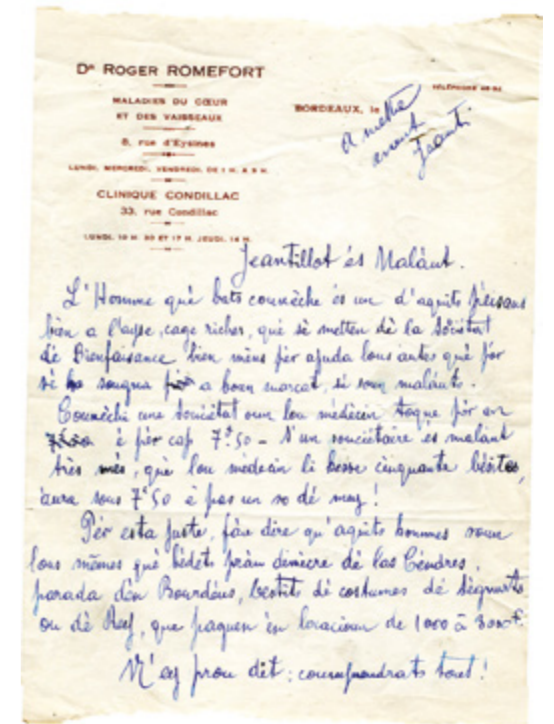 Dr ROGER ROMEFORT
MALADIES DU CŒUR
ET DES VAISSEAUX
8, rue d'Eysines
LUNDI, MERCREDI, VENDREDI, DE 1 H. A 3 H.
CLINIQUE CONDILLAC
33, rue Condillac
LUNDI, 10 H. 30 ET 17 H. JEUDI, 14 H.
TÉLÉPHONE
BORDEAUX, le
a mettre
avant
Jeanti
Jeantillot és Malàut.
L'Homme què bats counèche és un d'aquits péisans
bien a l'ayse, cage riches, què sè metten dè la Sociètat
dè Bienfaisance bien mèns pèr ajuda lous autes què pér
sè sougna a boun marcat, si soun malàuts.
Counèchi une Souciétat oun lou médécin toque pèr an
è pèr cap 7f50 - S'un souciétaire és malaut
très mès, què lou médecin li hesse cinquante bésites,
aura sous 7f50 è pas un so dè mey !
Pèr esta juste, fàu dire qu'aquits hommes soun
lous mêmes què bédets préou dimècre dé las Céndres,
parada d'en Bourdèus, bestits dé costumes dé
ou dè Rey, que paguen én loucacioun de 1000 à 3000f.
N'ey prou dit : coumprendrats tout !